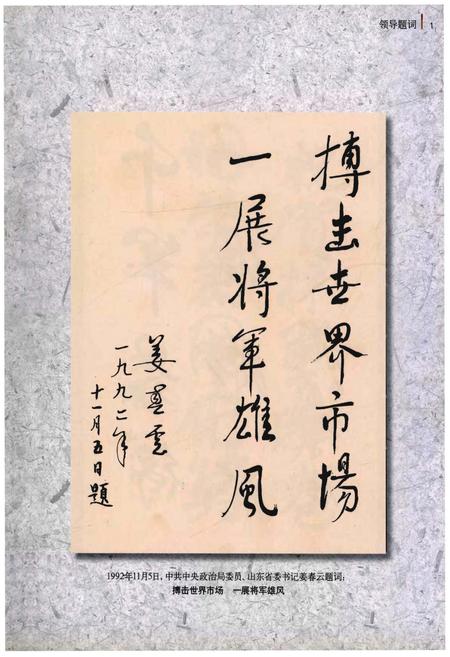 领导题词 1
搏击世界市场
一展將軍雄風
姜春雲
一九九二年
十一月五日題
1992年11月5日，中共中央政治局委员、山东省委书记姜春云题词：
搏击世界市场 一展将军雄风